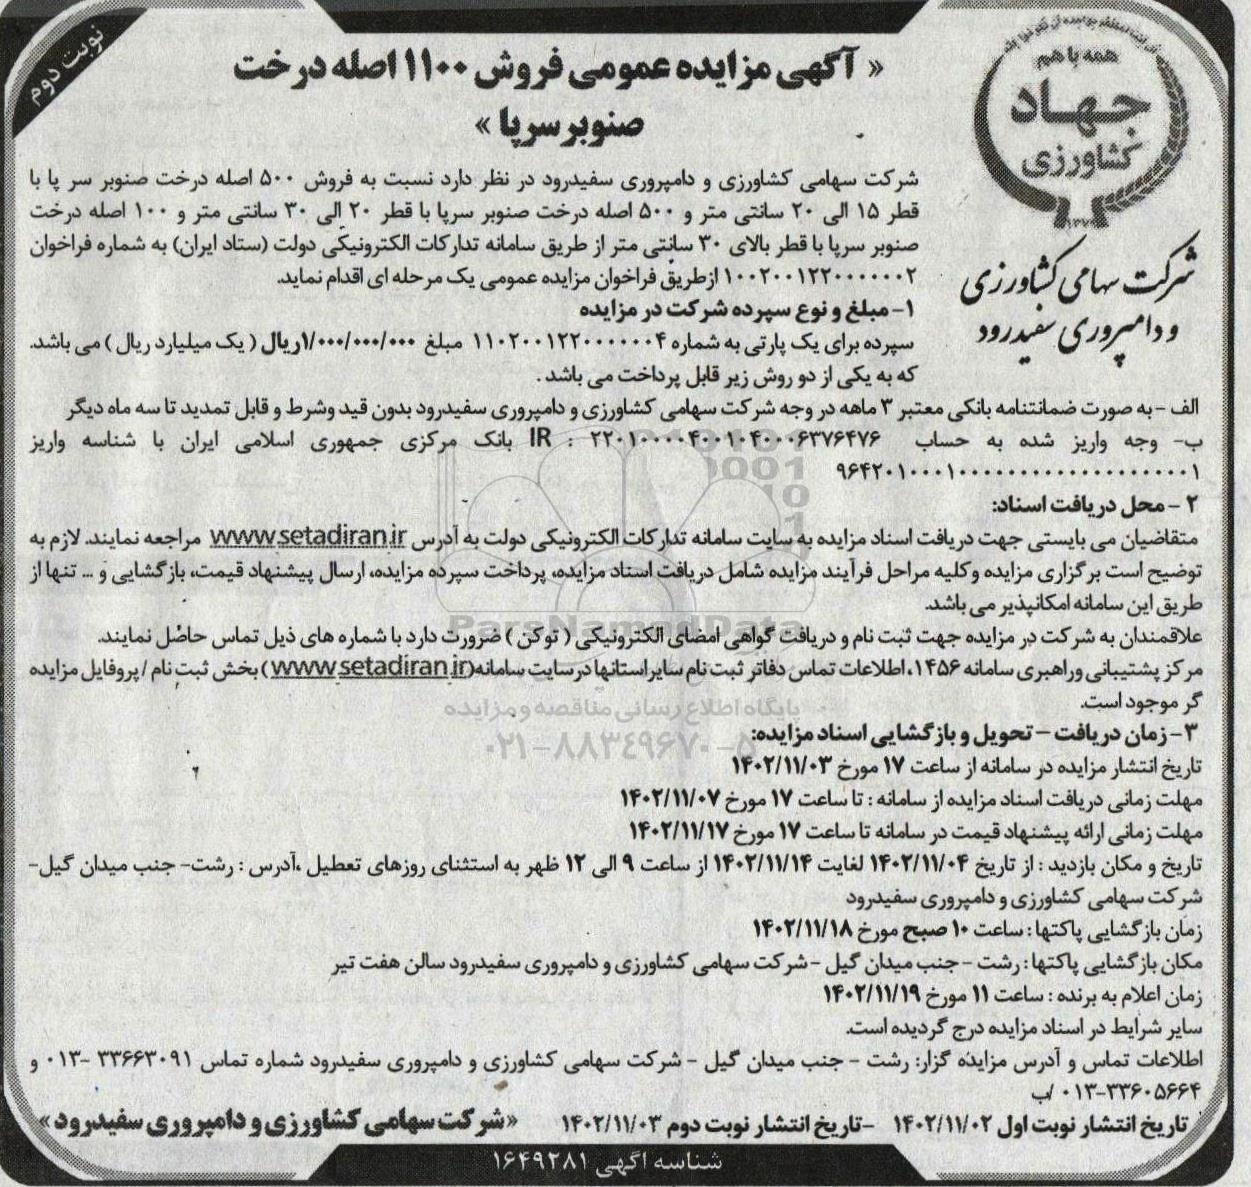 نوبت دوم
همه با هم
جهاد
کشاورزی
شرکت سهامی کشاورزی
و دامپروری سفیدرود
« آگهی مزایده عمومی فروش ۱۱۰۰ اصله درخت
صنوبر سرپا »
شرکت سهامی کشاورزی و دامپروری سفیدرود در نظر دارد نسبت به فروش ۵۰۰ اصله درخت صنوبر سر پا با
قطر ۱۵ الی ۲۰ سانتی متر و ۵۰۰ اصله درخت صنوبر سرپا با قطر ۲۰ الی ۳۰ سانتی متر و ۱۰۰ اصله درخت
صنوبر سرپا با قطر بالای ۳۰ سانتی متر از طریق سامانه تدارکات الکترونیکی دولت (ستاد ایران) به شماره فراخوان
۱۰۰۲۰۰۱۲۲۰۰۰۰۰۰۲ ازطریق فراخوان مزایده عمومی یک مرحله ای اقدام نماید.
۱- مبلغ و نوع سپرده شرکت در مزایده
سپرده برای یک پارتی به شماره ۱۱۰۲۰۰۱۲۲۰۰۰۰۰۰۴ مبلغ ۱/۰۰۰/۰۰۰/۰۰۰ریال ( یک میلیارد ریال ) می باشد.
که به یکی از دو روش زیر قابل پرداخت می باشد .
الف - به صورت ضمانتنامه بانکی معتبر ۳ ماهه در وجه شرکت سهامی کشاورزی و دامپروری سفیدرود بدون قید وشرط و قابل تمدید تا سه ماه دیگر
ب- وجه واریز شده به حساب ۲۲۰۱۰۰۰۰۴۰۰۱۰۴۰۰۰۶۳۷۶۴۷۶ : IR بانک مرکزی جمهوری اسلامی ایران با شناسه واریز
۲ - محل دریافت اسناد:
متقاضیان می بایستی جهت دریافت اسناد مزایده به سایت سامانه تدارکات الکترونیکی دولت به آدرس www.setadiran.ir مراجعه نمایند. لازم به
توضیح است برگزاری مزایده وکلیه مراحل فرآیند مزایده شامل دریافت اسناد مزایده، پرداخت سپرده مزایده، ارسال پیشنهاد قیمت، بازگشایی و ... تنها از
طریق این سامانه امکانپذیر می باشد.
علاقمندان به شرکت در مزایده جهت ثبت نام و دریافت گواهی امضای الکترونیکی ( توکن ) ضرورت دارد با شماره های ذیل تماس حاصل نمایند.
مرکز پشتیبانی وراهبری سامانه ۱۴۵۶، اطلاعات تماس دفاتر ثبت نام سایر استانها در سایت سامانه(www.setadiran.ir) بخش ثبت نام / پروفایل مزایده
گر موجود است.
۳- زمان دریافت – تحویل و بازگشایی اسناد مزایده:
تاریخ انتشار مزایده در سامانه از ساعت ۱۷ مورخ ۱۴۰۲/۱۱/۰۳
مهلت زمانی دریافت اسناد مزایده از سامانه : تا ساعت ۱۷ مورخ ۱۴۰۲/۱۱/۰۷
مهلت زمانی ارائه پیشنهاد قیمت در سامانه تا ساعت ۱۷ مورخ ۱۴۰۲/۱۱/۱۷
تاریخ و مکان بازدید : از تاریخ ۱۴۰۲/۱۱/۰۴ لغایت ۱۴۰۲/۱۱/۱۴ از ساعت ۹ الی ۱۲ ظهر به استثنای روزهای تعطیل ،آدرس : رشت- جنب میدان گیل-
شرکت سهامی کشاورزی و دامپروری سفیدرود
زمان بازگشایی پاکتها : ساعت ۱۰ صبح مورخ ۱۴۰۲/۱۱/۱۸
مکان بازگشایی پاکتها : رشت - جنب میدان گیل - شرکت سهامی کشاورزی و دامپروری سفیدرود سالن هفت تیر
زمان اعلام به برنده : ساعت ۱۱ مورخ ۱۴۰۲/۱۱/۱۹
سایر شرایط در اسناد مزایده درج گردیده است.
اطلاعات تماس و آدرس مزایده گزار: رشت - جنب میدان گیل - شرکت سهامی کشاورزی و دامپروری سفیدرود شماره تماس ۳۳۶۶۳۰۹۱ -۰۱۳ و
۰۱۳-۳۳۶۰۵۶۶۴ /ب
تاریخ انتشار نوبت اول ۱۴۰۲/۱۱/۰۲ -تاریخ انتشار نوبت دوم ۱۴۰۲/۱۱/۰۳
«شرکت سهامی کشاورزی و دامپروری سفیدرود»
شناسه آگهی ۱۶۴۹۲۸۱
ParsNamadData
پایگاه اطلاع رسانی مناقصه و مزایده
۰۲۱-۸۸۳۴۹۶۷۰-۵